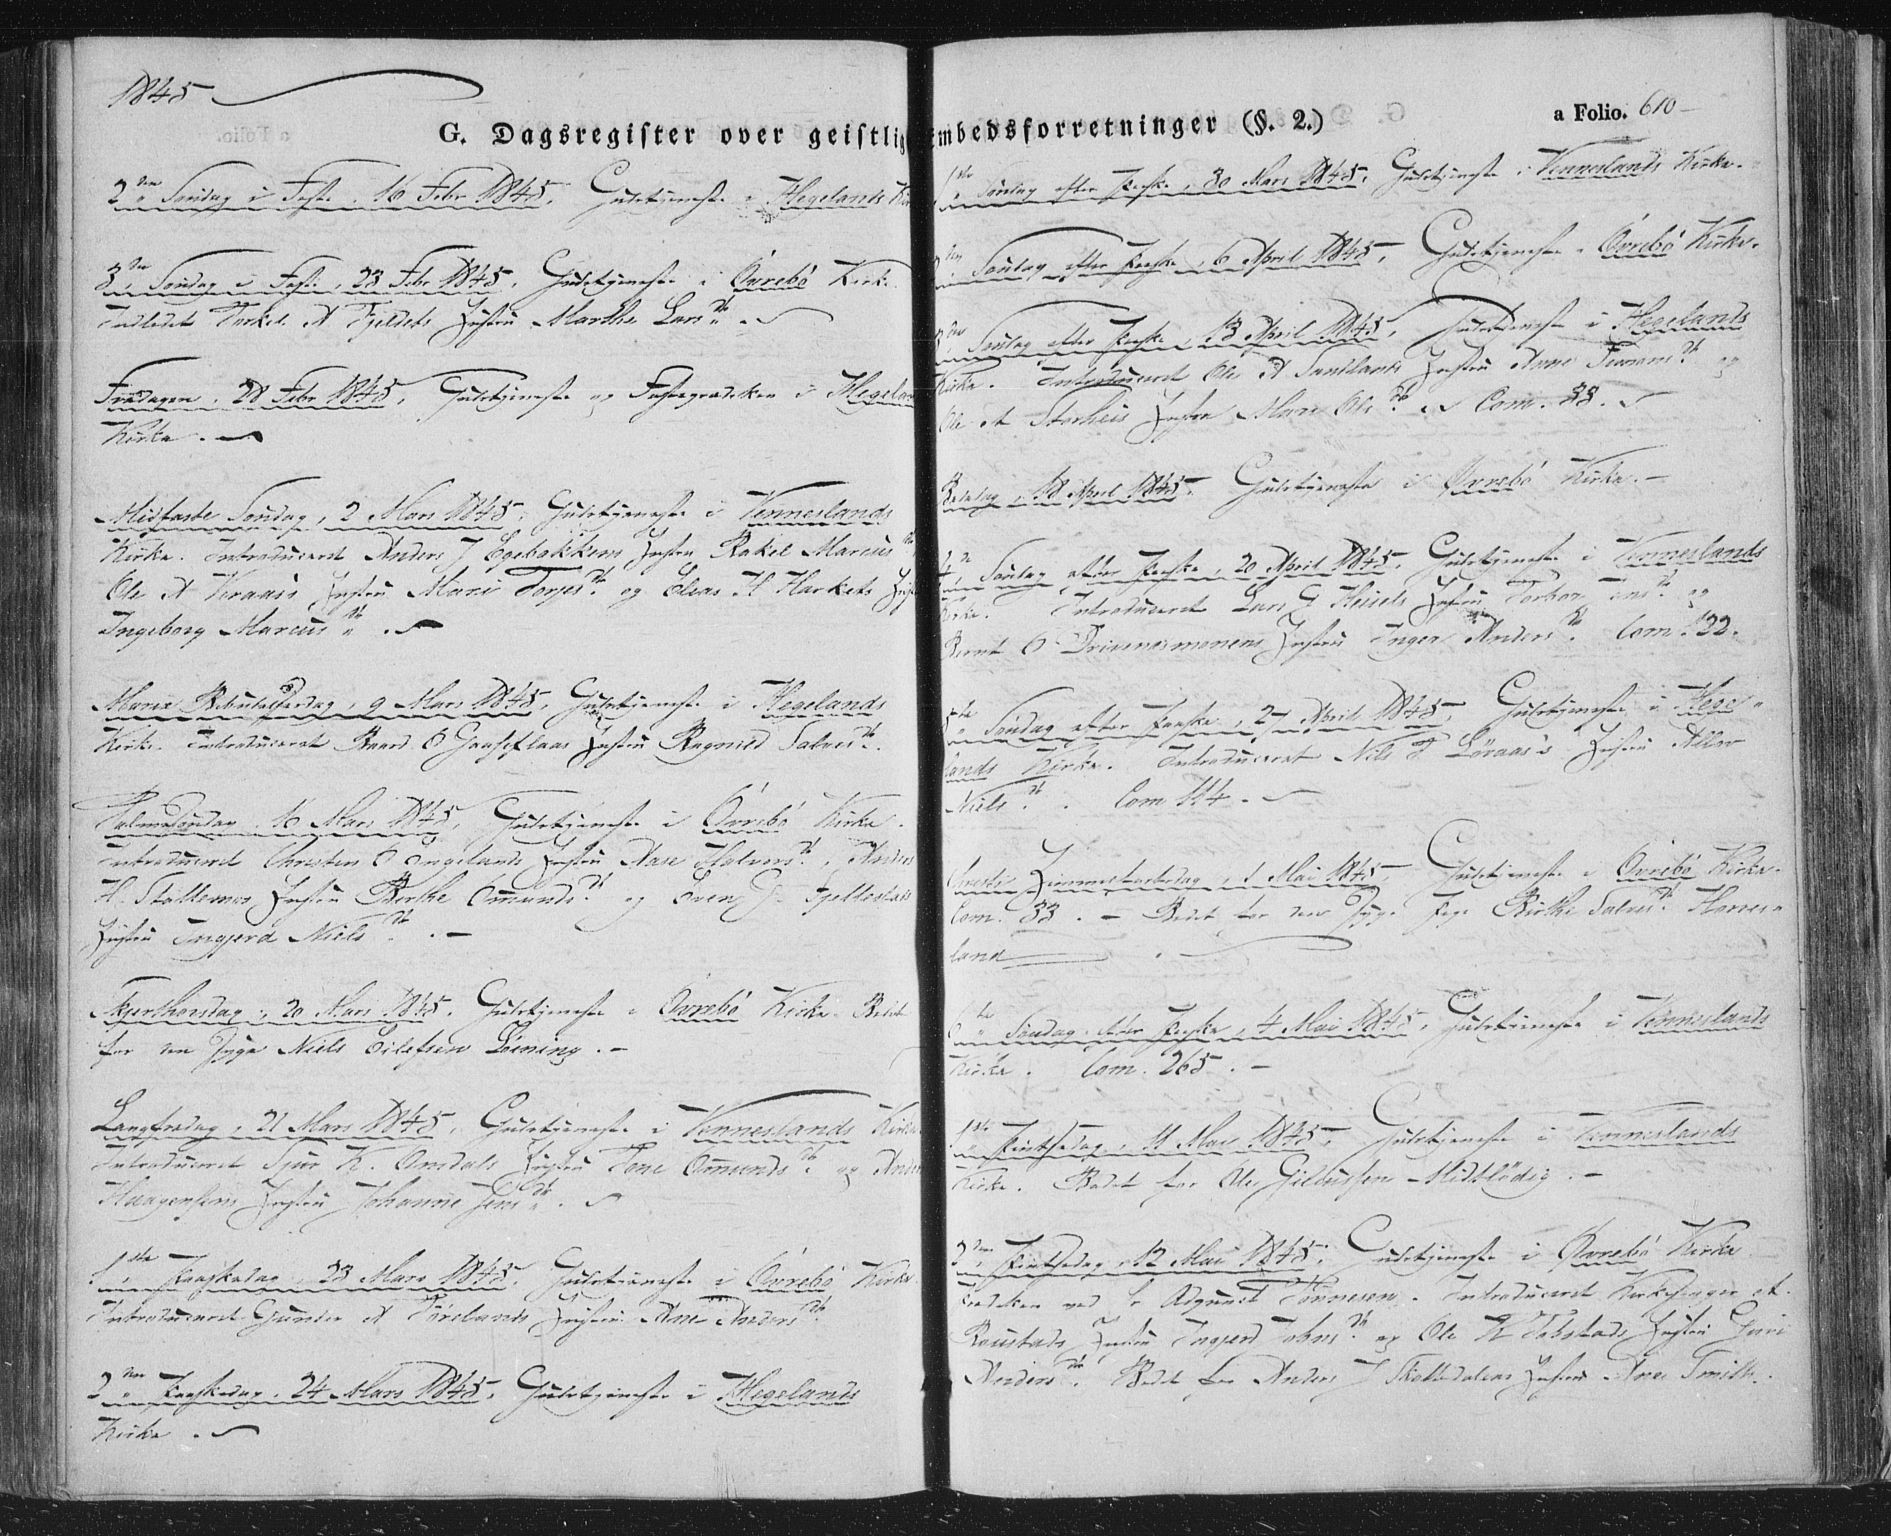 1845
G. Dagsregister over geistlig Embedsforretninger (§. 2.)
a Folio. 610
2den Søndag i Faste, 16 Febr 1845, Gudstjeneste i Hegelands Kir
3die Søndag i Faste, 23 Febr 1845, Gudstjeneste i Øvrebö Kirke
Indledet Torkel A Fjeldets Hustru Marthe Larsdtr
Fredagen, 28 Febr 1845, Gudstjeneste og Fasteprædiken i Hegelan
Kirke.
Midfaste Søndag, 2 Mars 1845, Gudstjeneste i Venneslands
Kirke. Introduceret Anders J Egebakkens Hustru Rakel Marcusdtr
Ole A Kraais Hustru Mari Torjesdtr og Elias H Harkets Hust
Ingeborg Marcusdtr.
Mariæ Bebudelsesdag, 9 Mars 1845, Gudstjeneste i Hegelands
Kirke. Introduceret Baard O Gaaseflaas Hustru Ragnild Salvesdtr.
Palmesøndag 16 Mars 1845, Gudstjeneste i Øvrebö Kirke.
Introduceret Christen O Engelands Hustru Aase Halvorsdtr. Anders
H. Stallemos Hustru Berthe Omundsdtr og Sven G Fjelleslats
Hustru Ingjerd Nielsdtr.
Skjerthorsdag, 20 Mars 1845. Gudstjeneste i Øvrebö Kirke. Bedet
for den syge Niels Eilefsen Løining.
Langfredag, 21 Mars 1845, Gudstjeneste i Venneslands Kirke
Introduceret Sjur K. Omdals Hustru Tone Omundsdtr og Ander
Haagensens Hustru Johanne Jensdtr.
1ste Paaskedag, 23 Mars 1845, Gudstjeneste i Øvrebö Kirke.
Introduceret Gunder A Førelands Hustru Ane Andersdtr
2den Paaskedag, 24 Mars 1845, Gudstjeneste i Hegelands
Kirke.
1ste Søndag efter Paaske, 30 Mars 1845, Gudstjeneste i Venneslands Kirke.
2den Søndag efter Paaske, 6 April 1845, Gudstjeneste i Øvrebö Kirke.
3die Søndag efter Paaske, 13 April 1845, Gudstjeneste i Hegelands
Kirke. Introduceret Ole A Sandlands Hustru Anne og
Ole A Storheis Hustru Mari Olsdtr. Com. 88.
Bededag, 18 April 1845. Gudstjeneste i Øvrebö Kirke.
4de Søndag efter Paaske, 20 April 1845, Gudstjeneste i Venneslands
Kirke. Introduceret Lars G Heisels Hustru Torbor og
Bernt O Drivenesmonens Hustru Inger Andersdtr. Com. 132.
5te Søndag efter Paaske, 27 April 1845, Gudstjeneste i Hege
lands Kirke. Introduceret Nils T Løraas's Hustru
Nielsdtr. Com 114.
Christi Himmelfartsdag, 1 Mai 1845, Gudstjeneste i Øvrebö Kirke.
Com. 33. Bedet for den syge Pige Birthe Salvesdtr Homes
land
6te Søndag efter Paaske, 4 Mai 1845, Gudstjeneste i Venneslands
Kirke. Com. 265.
1ste Pintsedag, 11 Mai 1845, Gudstjeneste i Venneslands
Kirke. Bedet for Ole Midtbödig.
2den Pintsedag, 12 Mai 1845, Gudstjeneste i Øvrebö Kirke
Prædiken ved Hr Adjunct Tönnesen. Introduceret Kirkesanger A.
Roustads Hustru Ingjerd Johnsdtr og Ole K Hustru Guri
Andersdtr. Bedet for Anders J Hustru Ane Smith.